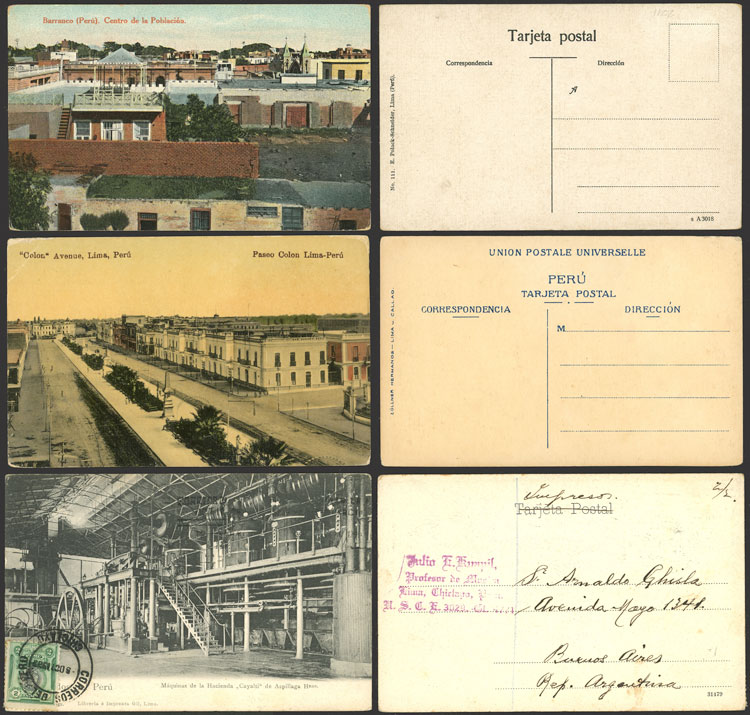 Barranco (Perú). Centro de la Población.
Tarjeta postal
Correspondencia
Dirección
No. 111. E. Polack-Schneider, Lima (Perú).
a A 3018
"Colon" Avenue, Lima, Perú
Paseo Colon Lima-Perú
UNION POSTALE UNIVERSELLE
PERÚ
TARJETA POSTAL
CORRESPONDENCIA
DIRECCIÓN
M
ZOLLNER HERMANOS — LIMA — CALLAO.
Perú
Máquinas de la Hacienda „Cayaltí" de Aspíllaga Hnos.
Librería e Imprenta Gil, Lima.
CHICLAYO
CORREOS DEL PERU
2
Impresos.
2/2
Tarjeta Postal
Julio E.
Profesor de
Lima, Chiclayo,
U. S. C. E.
Sr. Arnaldo Ghisla
Avenida Mayo 1341.
Buenos Aires
Rep. Argentina
31179